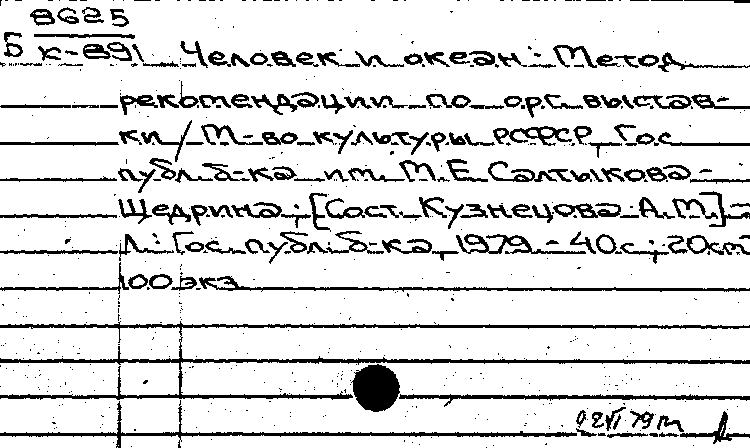 8625
Б К-891 Человек и океан: Метод.
рекомендации по орг. выстав-
ки / М-во культуры РСФСР, Гос.
публ. б-ка им. М.Е. Салтыкова-
Щедрина; [Сост. Кузнецова А.М.] -
Л.: Гос. публ. б-ка, 1979. - 40 с.; 20 cm
100 экз.